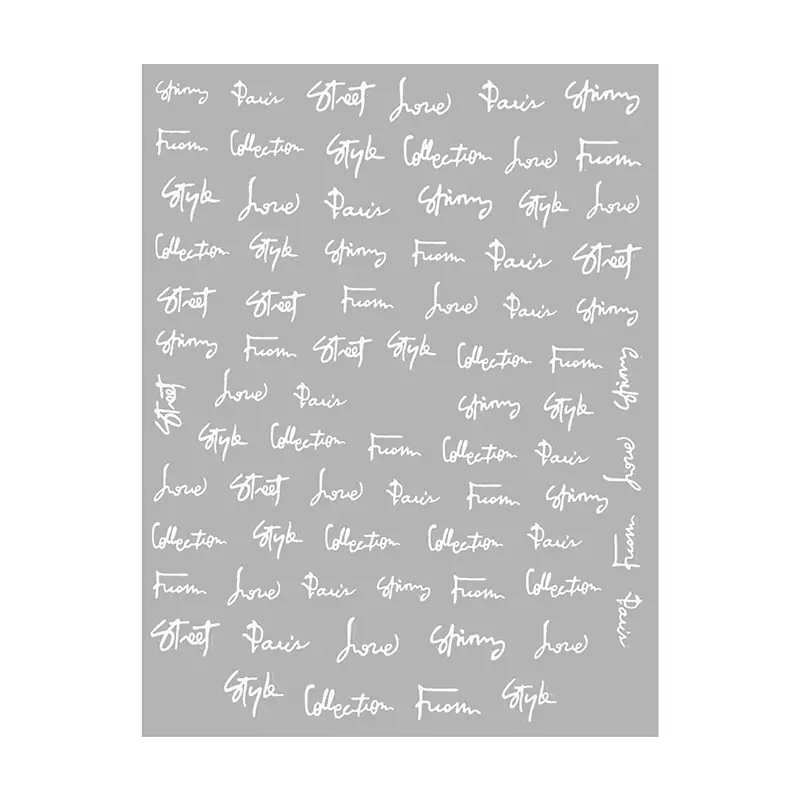 Spinny Paris Street Love Paris Spinny
Fuom Collection Style Collection Love Fuom
Style Love Paris Spinny Style Love
Collection Style Spinny Fuom Paris Street
Street Street Fuom Love Paris Spinny
Spinny Fuom Street Style Collection Fuom Spinny
Street Love Paris Spinny Style
Style Collection Fuom Collection Paris Love
Love Street Love Paris Fuom Spinny
Collection Style Collection Collection Paris Fuom
Fuom Love Paris Spinny Fuom Collection Paris
Street Paris Love Spinny Love
Style Collection Fuom Style